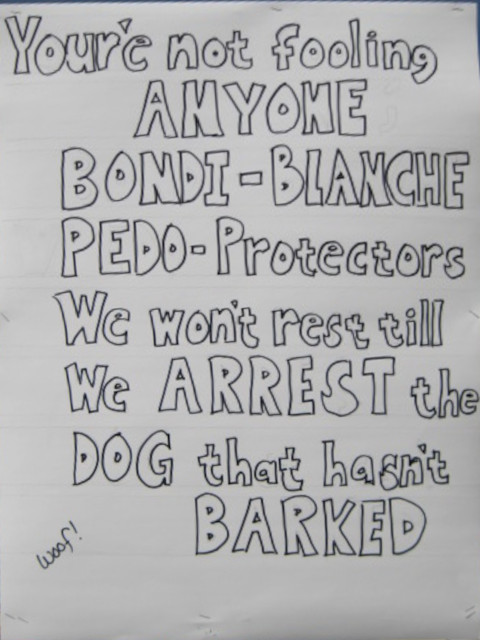 Your'e not fooling
ANYONE
BONDI-BLANCHE
PEDO-Protectors
We won't rest till
We ARREST the
DOG that hasn't
BARKED
woof!